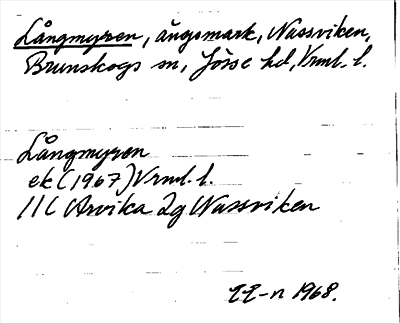 Långmyren, ängsmark, Nassviken,
Brunskogs sn, Jösse hd, Vrml. l.
Långmyren
ek (1967) Vrml. l.
11C Arvika 2g Nassviken
-n 1968.